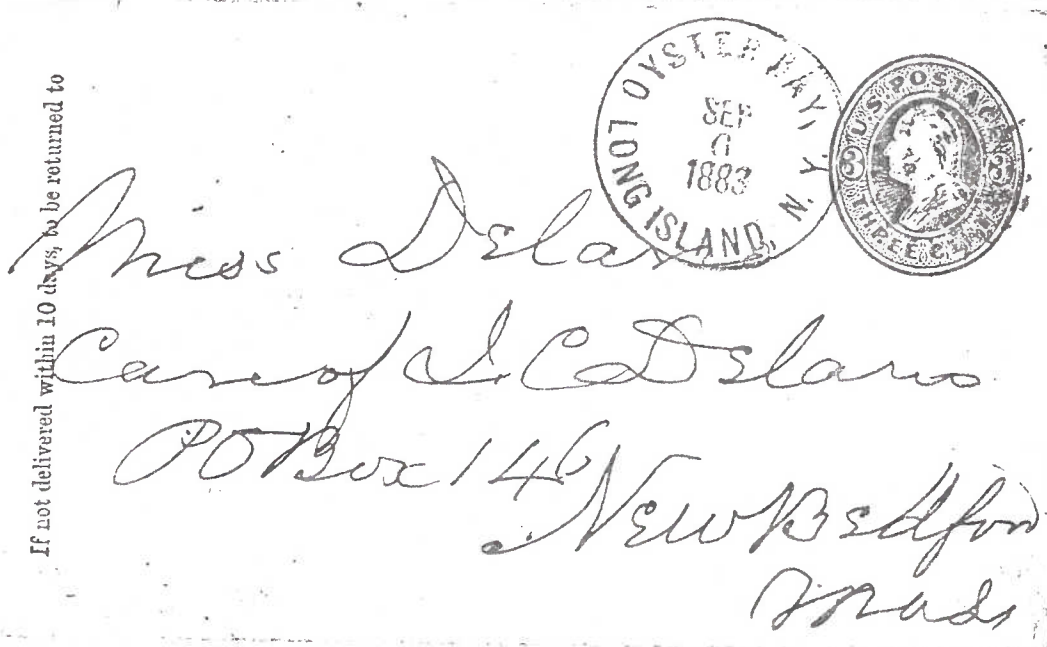 If not delivered within 10 days, to be returned to
OYSTER BAY, N.Y.
LONG ISLAND,
SEP
1883
U.S. POSTAGE
3 3
THREE CENTS
Miss Delano
Care of I. C Delano
PO Box 146
New Bedford
Mass